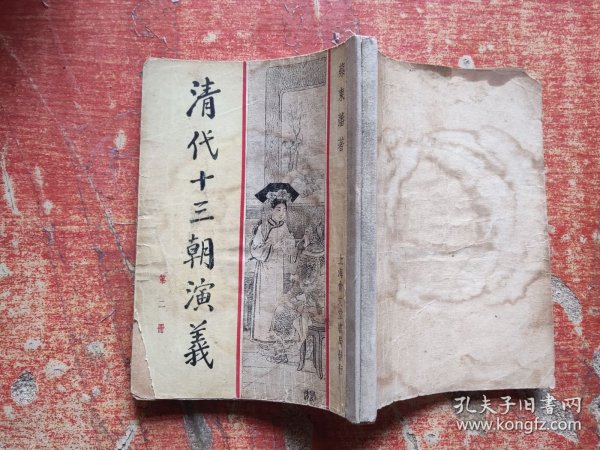 清代十三朝演義
第二冊
蔡東藩著
上海會文堂書局發行
孔夫子旧书网
www.kongfz.com